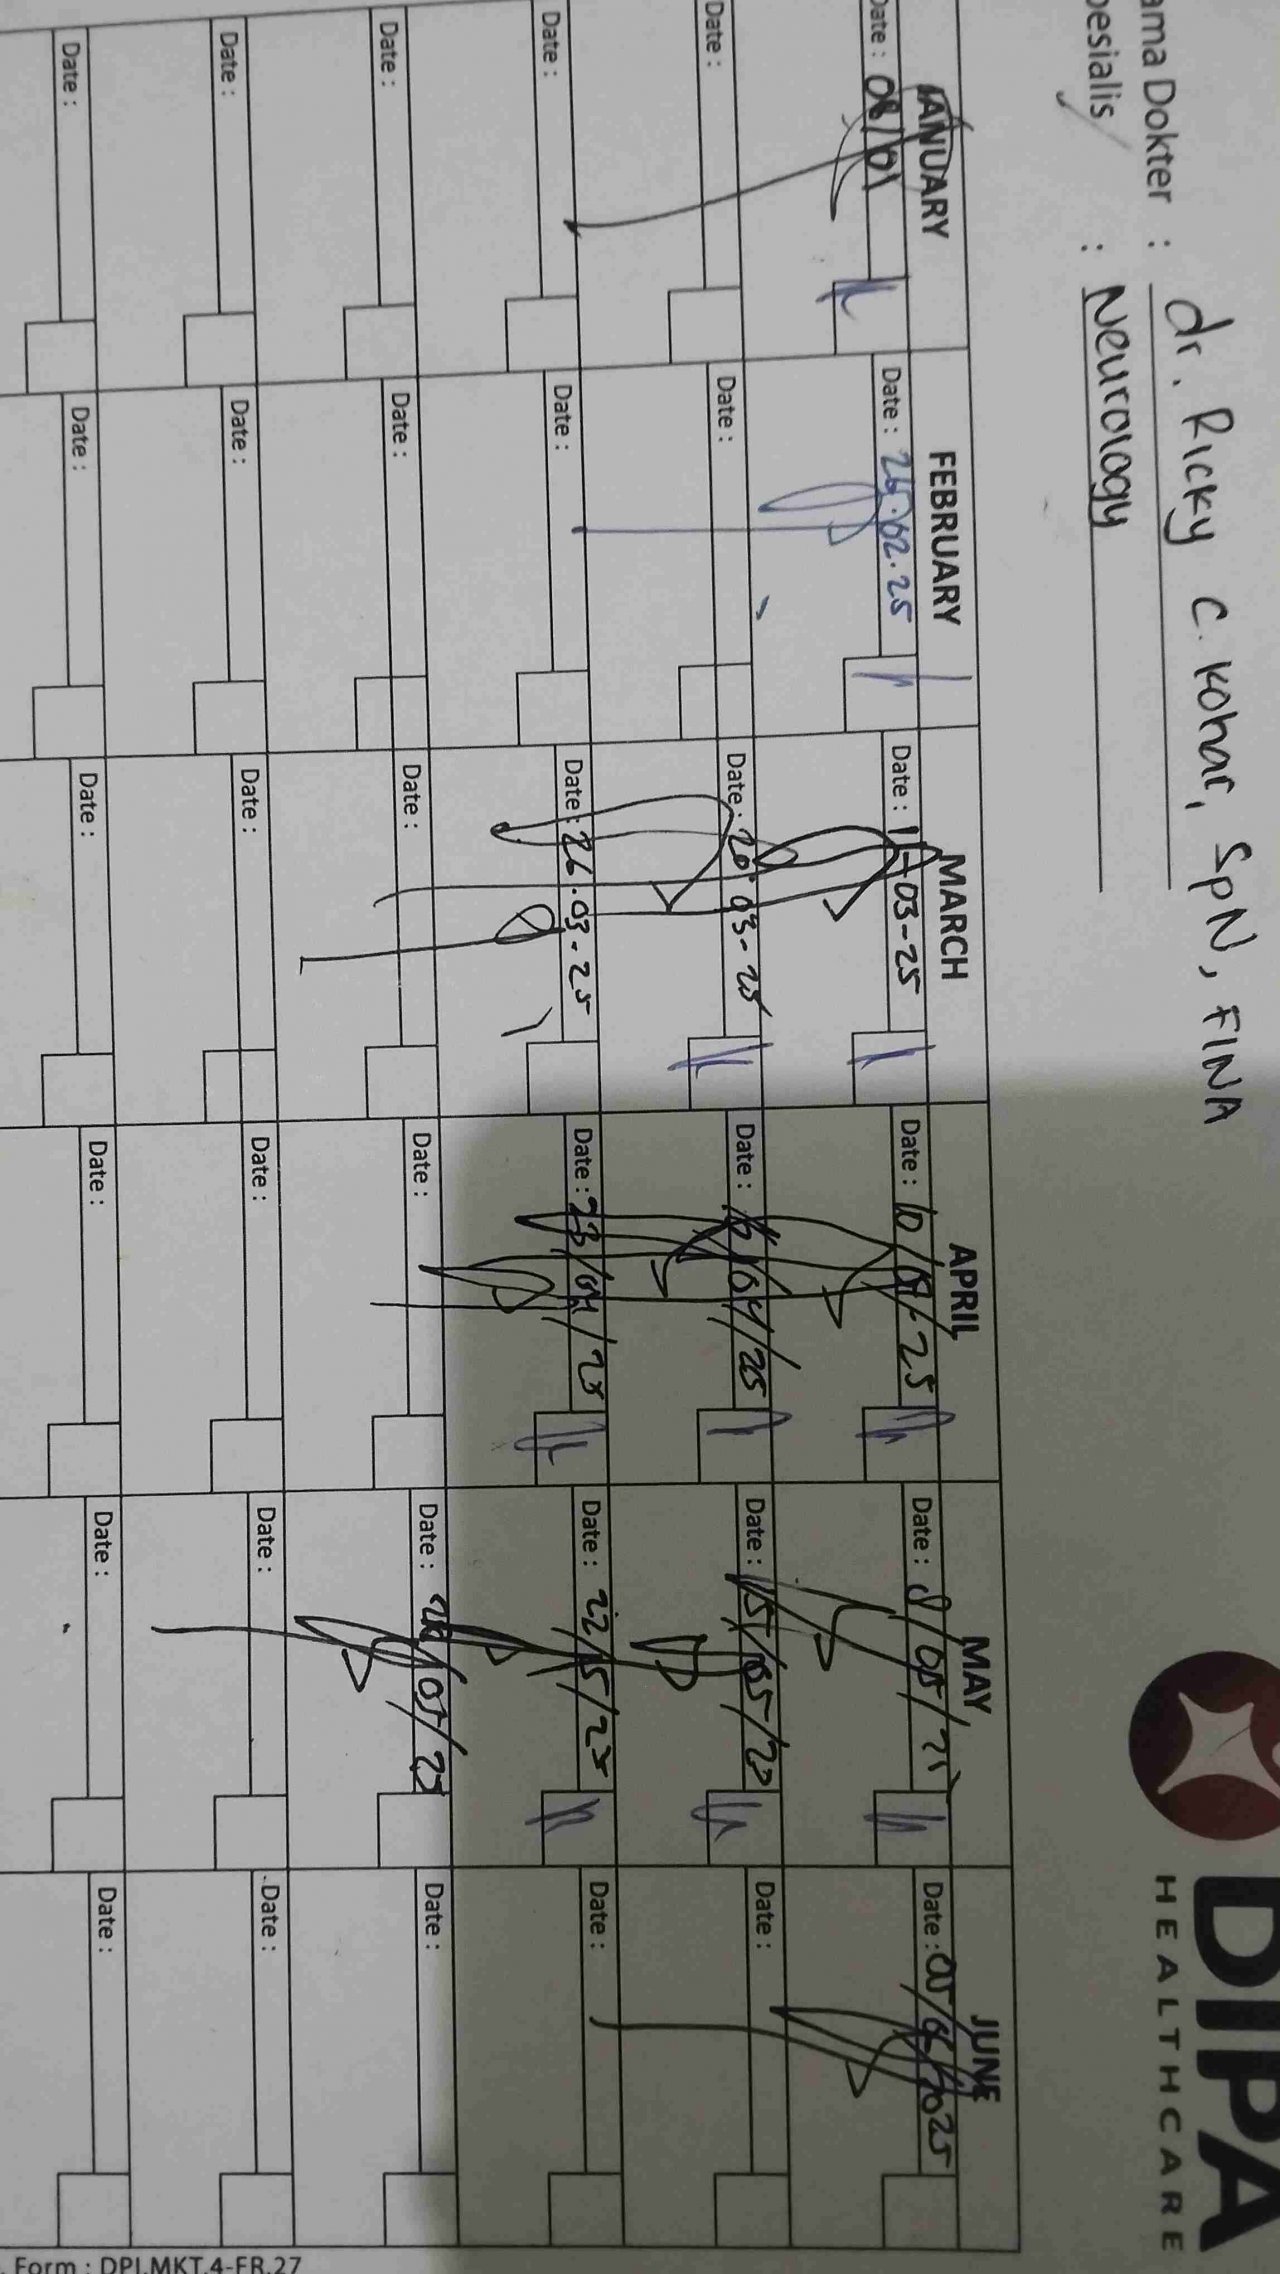 DIPA
HEALTHCARE
ama Dokter : dr. Ricky C. Kohar, SpN, FINA
pesialis : Neurology
JANUARY FEBRUARY MARCH APRIL MAY JUNE
Date : 08/01 Date : 26.02.25 Date : 11-03-25 Date : 10/04/25 Date : 8/05/25 Date : 05/06/2025
Date : Date : Date : 20.03-25 Date : 16/04/25 Date : 15/05/25 Date :
Date : Date : Date : 26.03-25 Date : 23/04/25 Date : 22/5/25 Date :
Date : Date : Date : Date : Date : /05/25 Date :
Date : Date : Date : Date : Date : Date :
Date : Date : Date : Date : Date : Date :
Form : DPI.MKT.4-FR.27